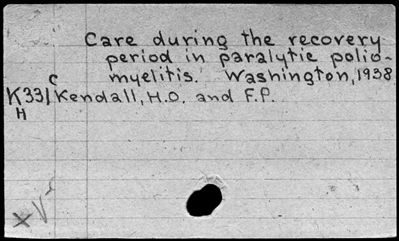 Care during the recovery
period in paralytic polio-
myelitis. Washington, 1938
C
K331 Kendall, H.O. and F.P.
H